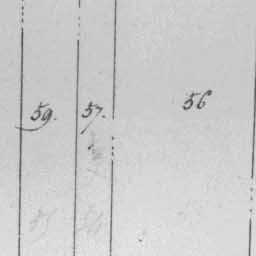 59. 57. 56